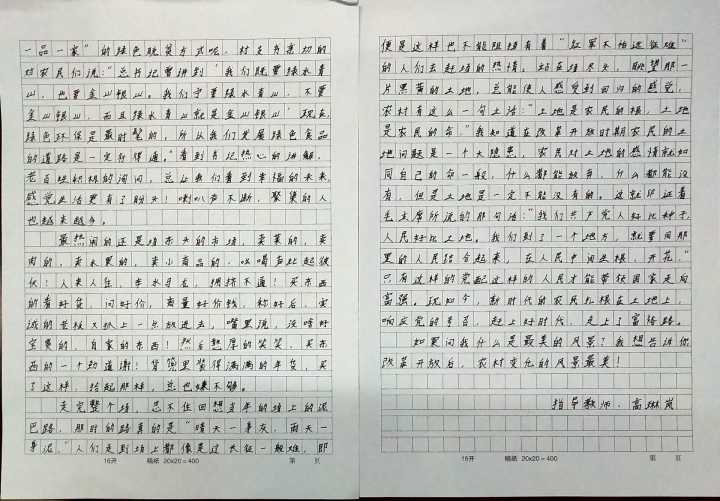 一品一家”的绿色脱贫方式呢，村主书亲切的
对农民们说：“总书记曾讲到‘我们既要绿水青
山，也要金山银山。我们宁要绿水青山，不要
金山银山，而且绿水青山就是金山银山’现在，
绿色环保是最时髦的，所以我们发展绿色食品
的道路是一定行得通。”看到书记热心的讲解，
老百姓积极的询问，总让我们看到幸福的未来，
感觉生活更有了盼头！喇叭声不断，聚集的人
也越来越多。
最热闹的还是场东头的市场，卖菜的，卖
肉的，卖水果的，卖小商品的，吆喝声此起彼
伏！人来人往，车水马龙，拥挤不通！买东西
的看好货，问好价，商量好价钱，称好后，实
诚的老板又抓上一点放进去，嘴里说，没啥好
宝贵的，自家的东西！然后憨厚的笑笑，买东
西的一个劲道谢！背篼里装得满满的年货，买
了这样，拾起那样，总也嫌不够。
走完整个场，忍不住回想当年的场上的泥
巴路，那时的路真的是“晴天一身灰，雨天一
身泥。”人们走到场上都像是过长征一般难，即
16开 稿纸 20x20=400 第 页
便是这样也不能阻挡有着“红军不怕远征难”
的人们去赶场的热情。站在场尽头，眺望那一
片黑黄的土地，总能使人感受到回归的感觉，
农村有这么一句土话：“土地是农民的根，土地
是农民的命”我知道在改革开放时期农民的土
地问题是一个大隐患，农民对土地的感情就如
同自己的命一般，什么都能放弃，什么都能没
有，但是土地是一定不能没有的。这就印证着
毛主席所说的那句话：“我们共产党人好比种子，
人民好比土地。我们到了一个地方，就要同那
里的人民结合起来，在人民中间生根、开花。”
只有这样的党配这样的人民才能带领国家走向
富强。现如今，新时代的农民扎根在土地上，
响应党的号召，赶上好时代，走上了富裕路。
如果问我什么是最美的风景？我想告诉你
改革开放后，农村变化的风景最美！
指导教师：高琳岚
16开 稿纸 20x20=400 第 页